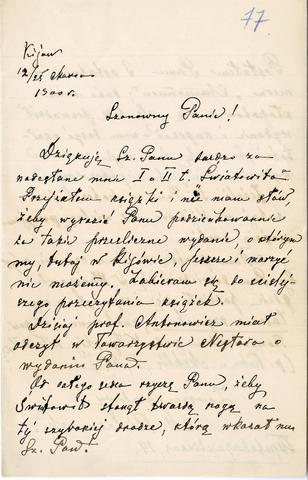 77
Kijów
12/25 Marca
1900 r.
Szanowny Panie!
Dziękuję Sz. Panu bardzo za
nadesłane mnie I a II t. Światowita
Przejrzałem książki i nie mam słów,
żeby wyrazić Panu podziękowanie
za takie przecudowne wydanie, o którym
my, tutaj w Kijowie, jeszcze i marzyć
nie możemy. Zabieram się do ściślej-
szego przeczytania książek.
Dzisiaj prof. Antonowicz miał
odczyt w Towarzystwie Nestora o
wydaniu Pana.
Od całego serca życzę Panu, żeby
Światowit stanął twardą nogą na
tej szybkiej drodze, którą wskazał mu
Sz. Pan.